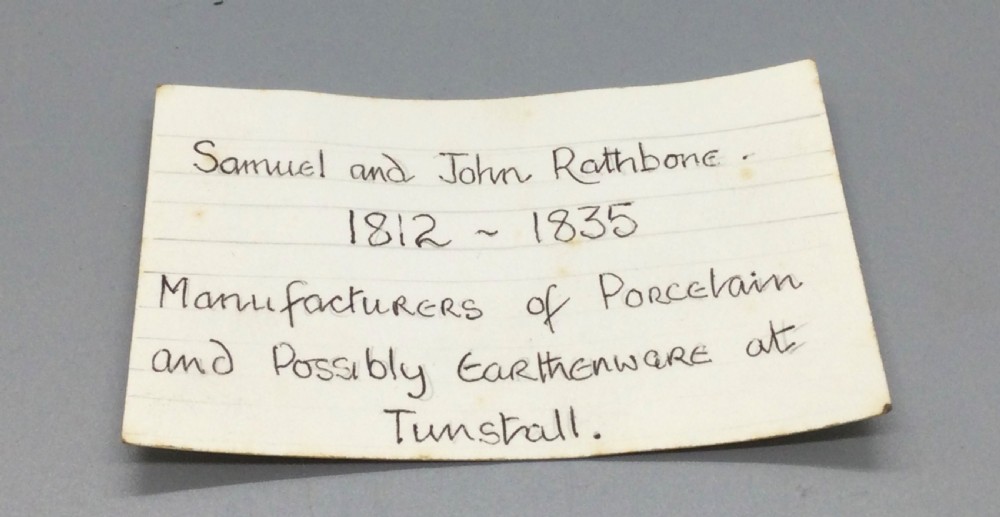 Samuel and John Rathbone.
1812 ~ 1835
Manufacturers of Porcelain
and Possibly Earthenware at
Tunstall.